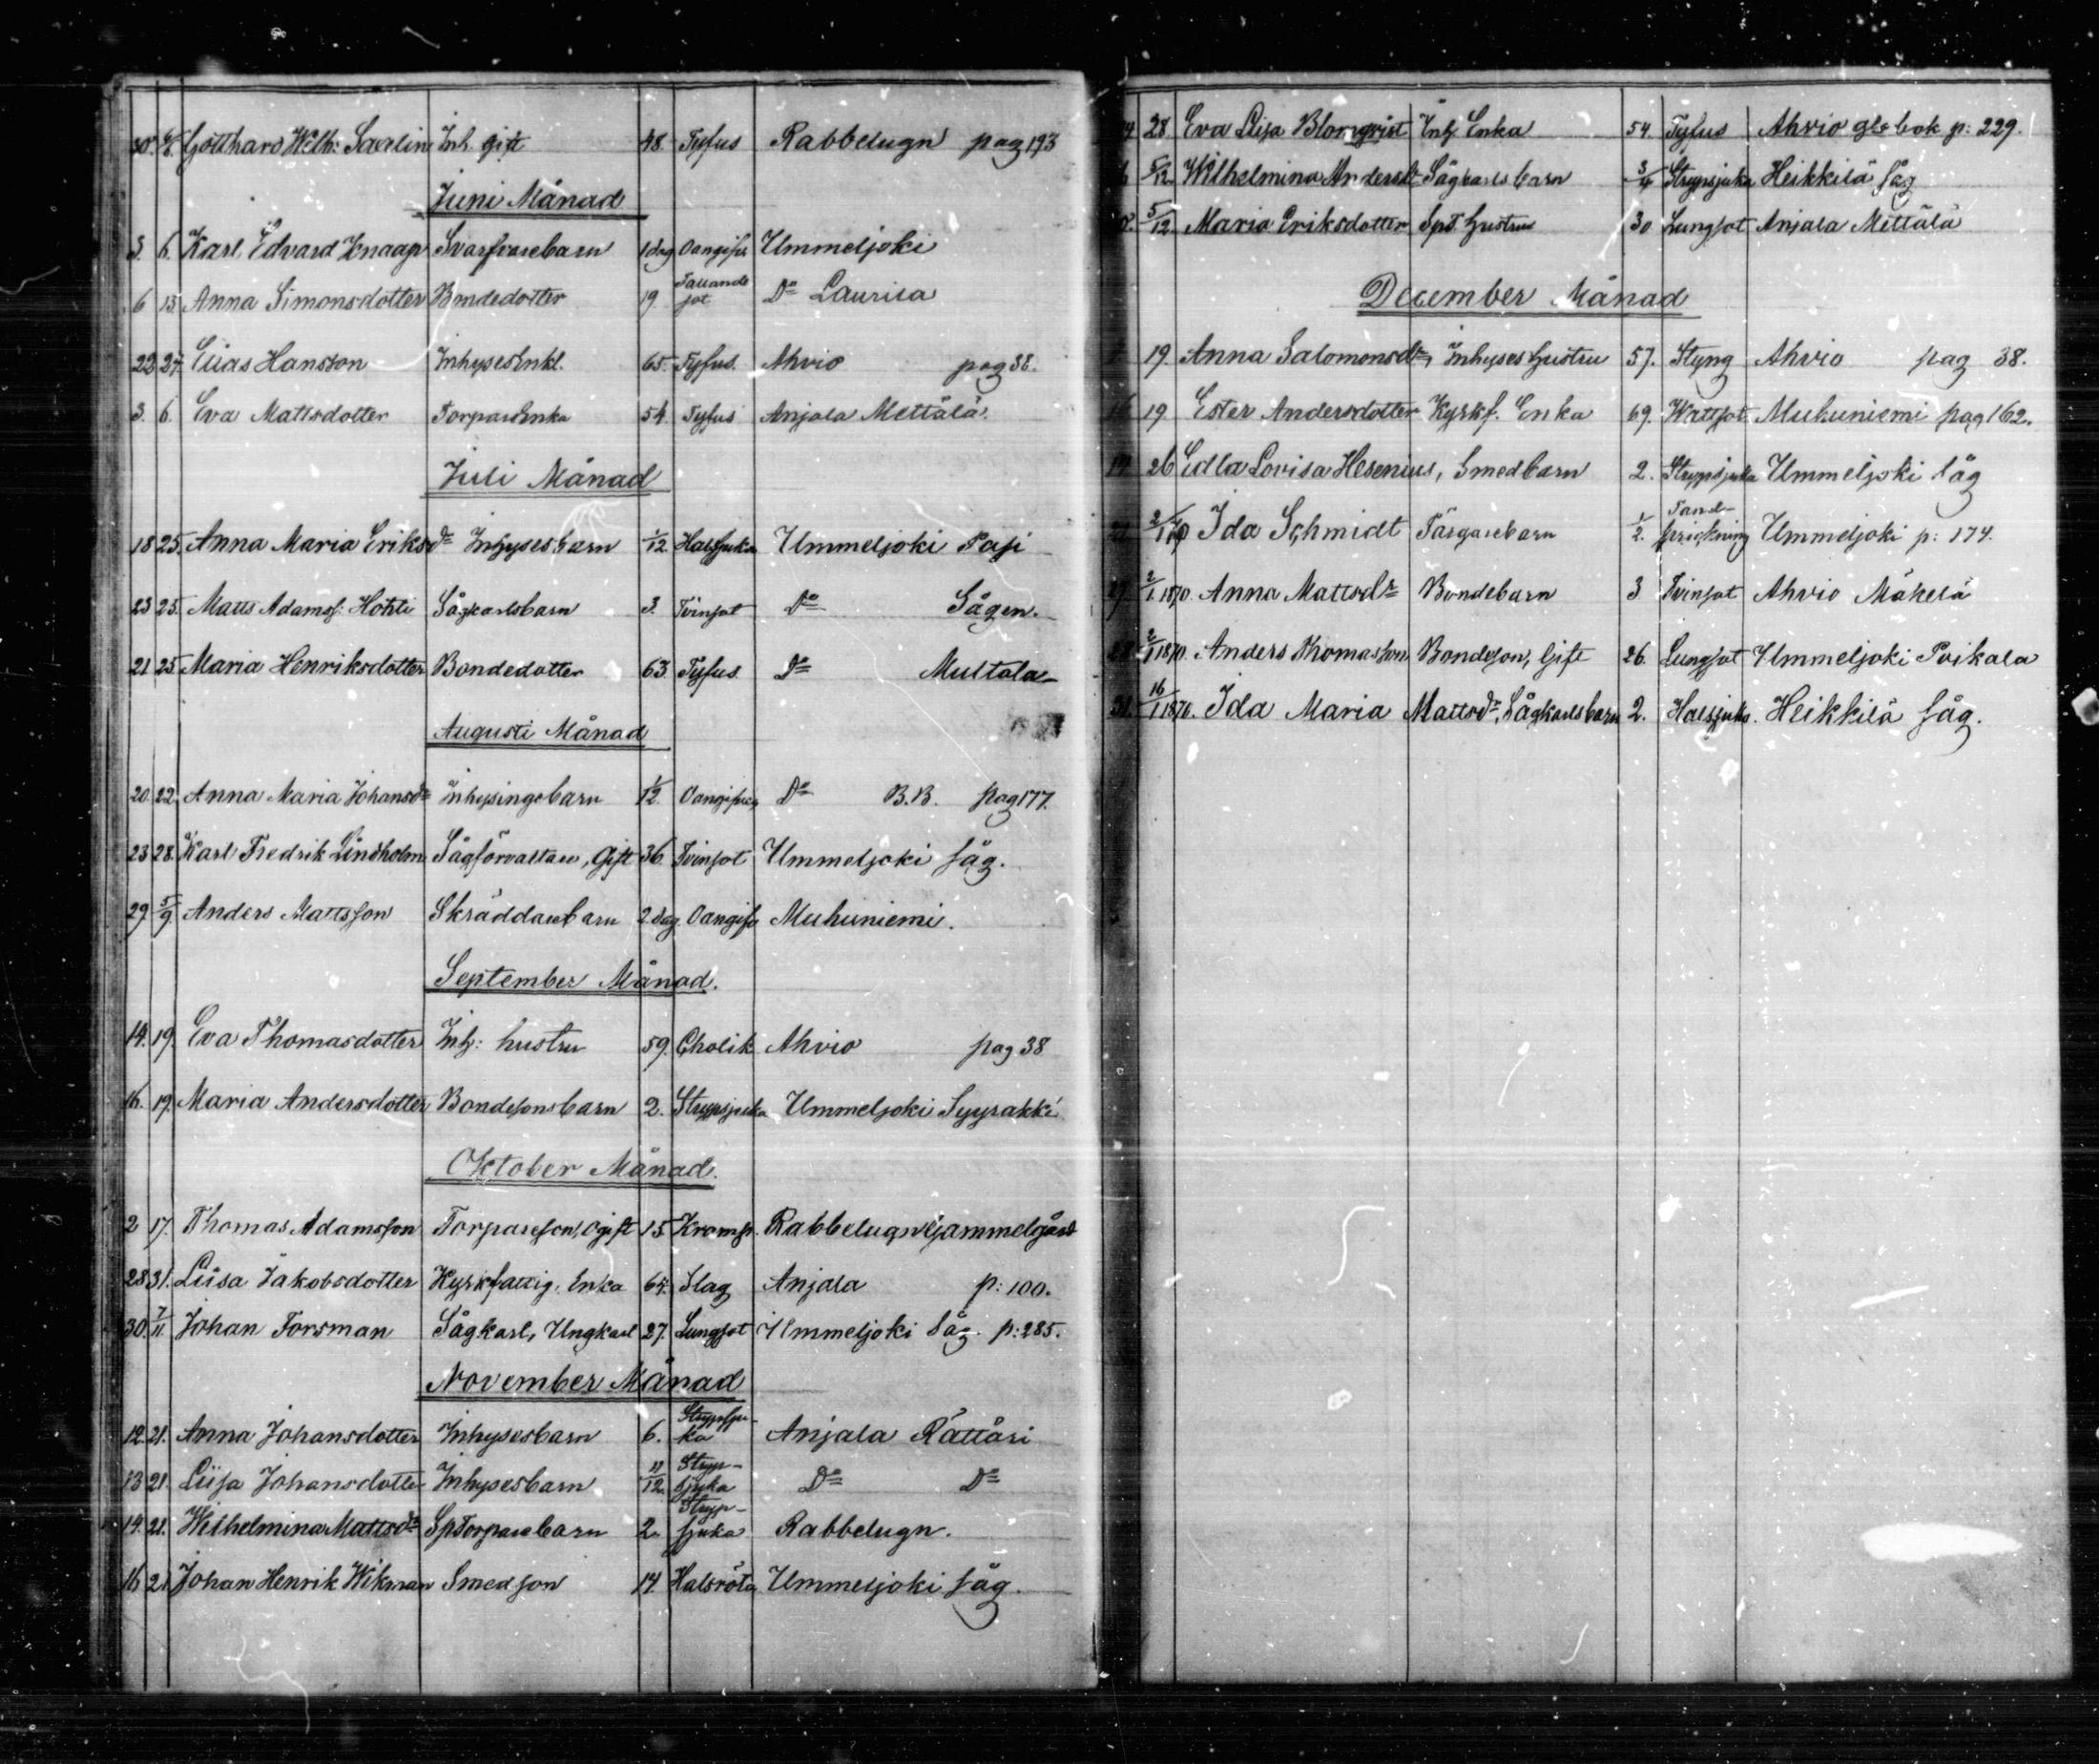 30. 6/6. Gotthard Wilh: Saxelin Inh. gift 48 Tyfus Rabbelugn pag 193
Juni Månad
3. 6. Karl Edvard Knaap Svarfvarebarn 1 dag Oangifv Ummeljoki
6 13. Anna Simonsdotter Bondedotter 19. Fallande sot Do Laurila
22 27. Elias Hansson InhysesEnkl. 65. Tyfus. Ahvio pag 38.
3. 6. Eva Mattsdotter TorpareEnka 54. Tyfus Anjala Mettälä.
Juli Månad
18 25. Anna Maria Eriksdr Inhysesbarn 1/12 Halssjuka Ummeljoki Pasi
23 25. Matts Adamss: Hohti Sågkarlsbarn 3. Tvinsot Do Sågen.
21 25 Maria Henriksdotter Bondedotter 63. Tyfus. Do Multala
Augusti Månad
20. 22. Anna Maria Johansdr Inhysingebarn 1/12. Oangifven Do B.B. pag 177.
23 28. Karl Fredrik Lindholm Sågförvaltare, Gift 36. Tvinsot Ummeljoki såg.
29 5/9. Anders Mattsson Skräddarebarn 2 dag Oangifv Muhuniemi.
September Månad.
14. 19. Eva Thomasdotter Inh: hustru 59. Cholik Ahvio pag 38
16. 19. Maria Andersdotter Bondesonsbarn 2. Strypsjuka Ummeljoki Syyrakki
Oktober Månad.
2 17. Thomas Adamsson Torpareson, ogift 15 Kramp. Rabbelugn Gammelgård
28 31. Liisa Jakobsdotter Kyrkfattig. Enka 64. Slag Anjala p: 100.
30 7/11. Johan Forsman Sågkarl, Ungkarl 27. Lungsot Ummeljoki Såg. p: 285.
November Månad
12. 21. Anna Johansdotter Inhysesbarn 6. Strypsjuka Anjala Rättäri
13 21. Liisa Johansdotter Inhysesbarn 11/12. Strypsjuka Do Do
14. 21. Wilhelmina Mattsdr SpTorparebarn 2. Strypsjuka Rabbelugn.
16 21 Johan Henrik Wikman Smedson 14. Halsröta Ummeljoki såg.
28. Eva Lisa Blomqvist Inh Enka 54. Tyfus Ahvio gla bok p: 229.
5/12 Wilhelmina Andersdr Sågkarlsbarn 3/4 Strypsjuka Heikkilä såg
5/12 Maria Eriksdotter Spt. hustru 30 Lungsot Anjala Mettälä
December Månad
19. Anna Salomonsdr, Inhyses hustru 57. Styng Ahvio pag 38.
16 19 Ester Andersdotter Kyrkf. Enka 69. Wattsot Muhuniemi pag 162.
26 Edla Lovisa Hesenius, Smedbarn 2. Strypsjuka Ummeljoki Såg
21 2/1 70 Ida Schmidt Färgarebarn 1/2. Tandsprickning Ummeljoki p: 174.
27. 2/1 1870. Anna Mattsdr Bondebarn 3 Tvinsot Ahvio Mäkelä
28 2/1 1870. Anders Thomasson Bondeson, Gift 26. Lungsot Ummeljoki Poikala
31. 16/1 1870. Ida Maria Mattsdr, Sågkarlsbarn 2. Halssjuka. Heikkilä såg.